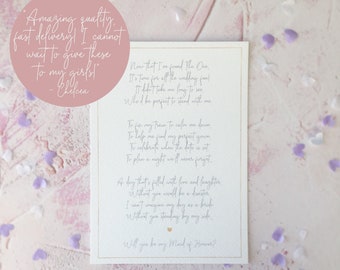 "Amazing quality,
fast delivery! I cannot
wait to give these
to my girls!"
- Chelsea
Now that I've found The One,
It's time for all the wedding fun!
It didn't take me long to see
Who'd be perfect to stand with me.
To fix my train to calm me down
To help me find my perfect gown
To celebrate when the date is set
To plan a night we'll never forget.
A day that's filled with love and laughter,
Without you would be a disaster
I can't imagine my day as a bride
Without you standing by my side.
Will you be my Maid of Honour?